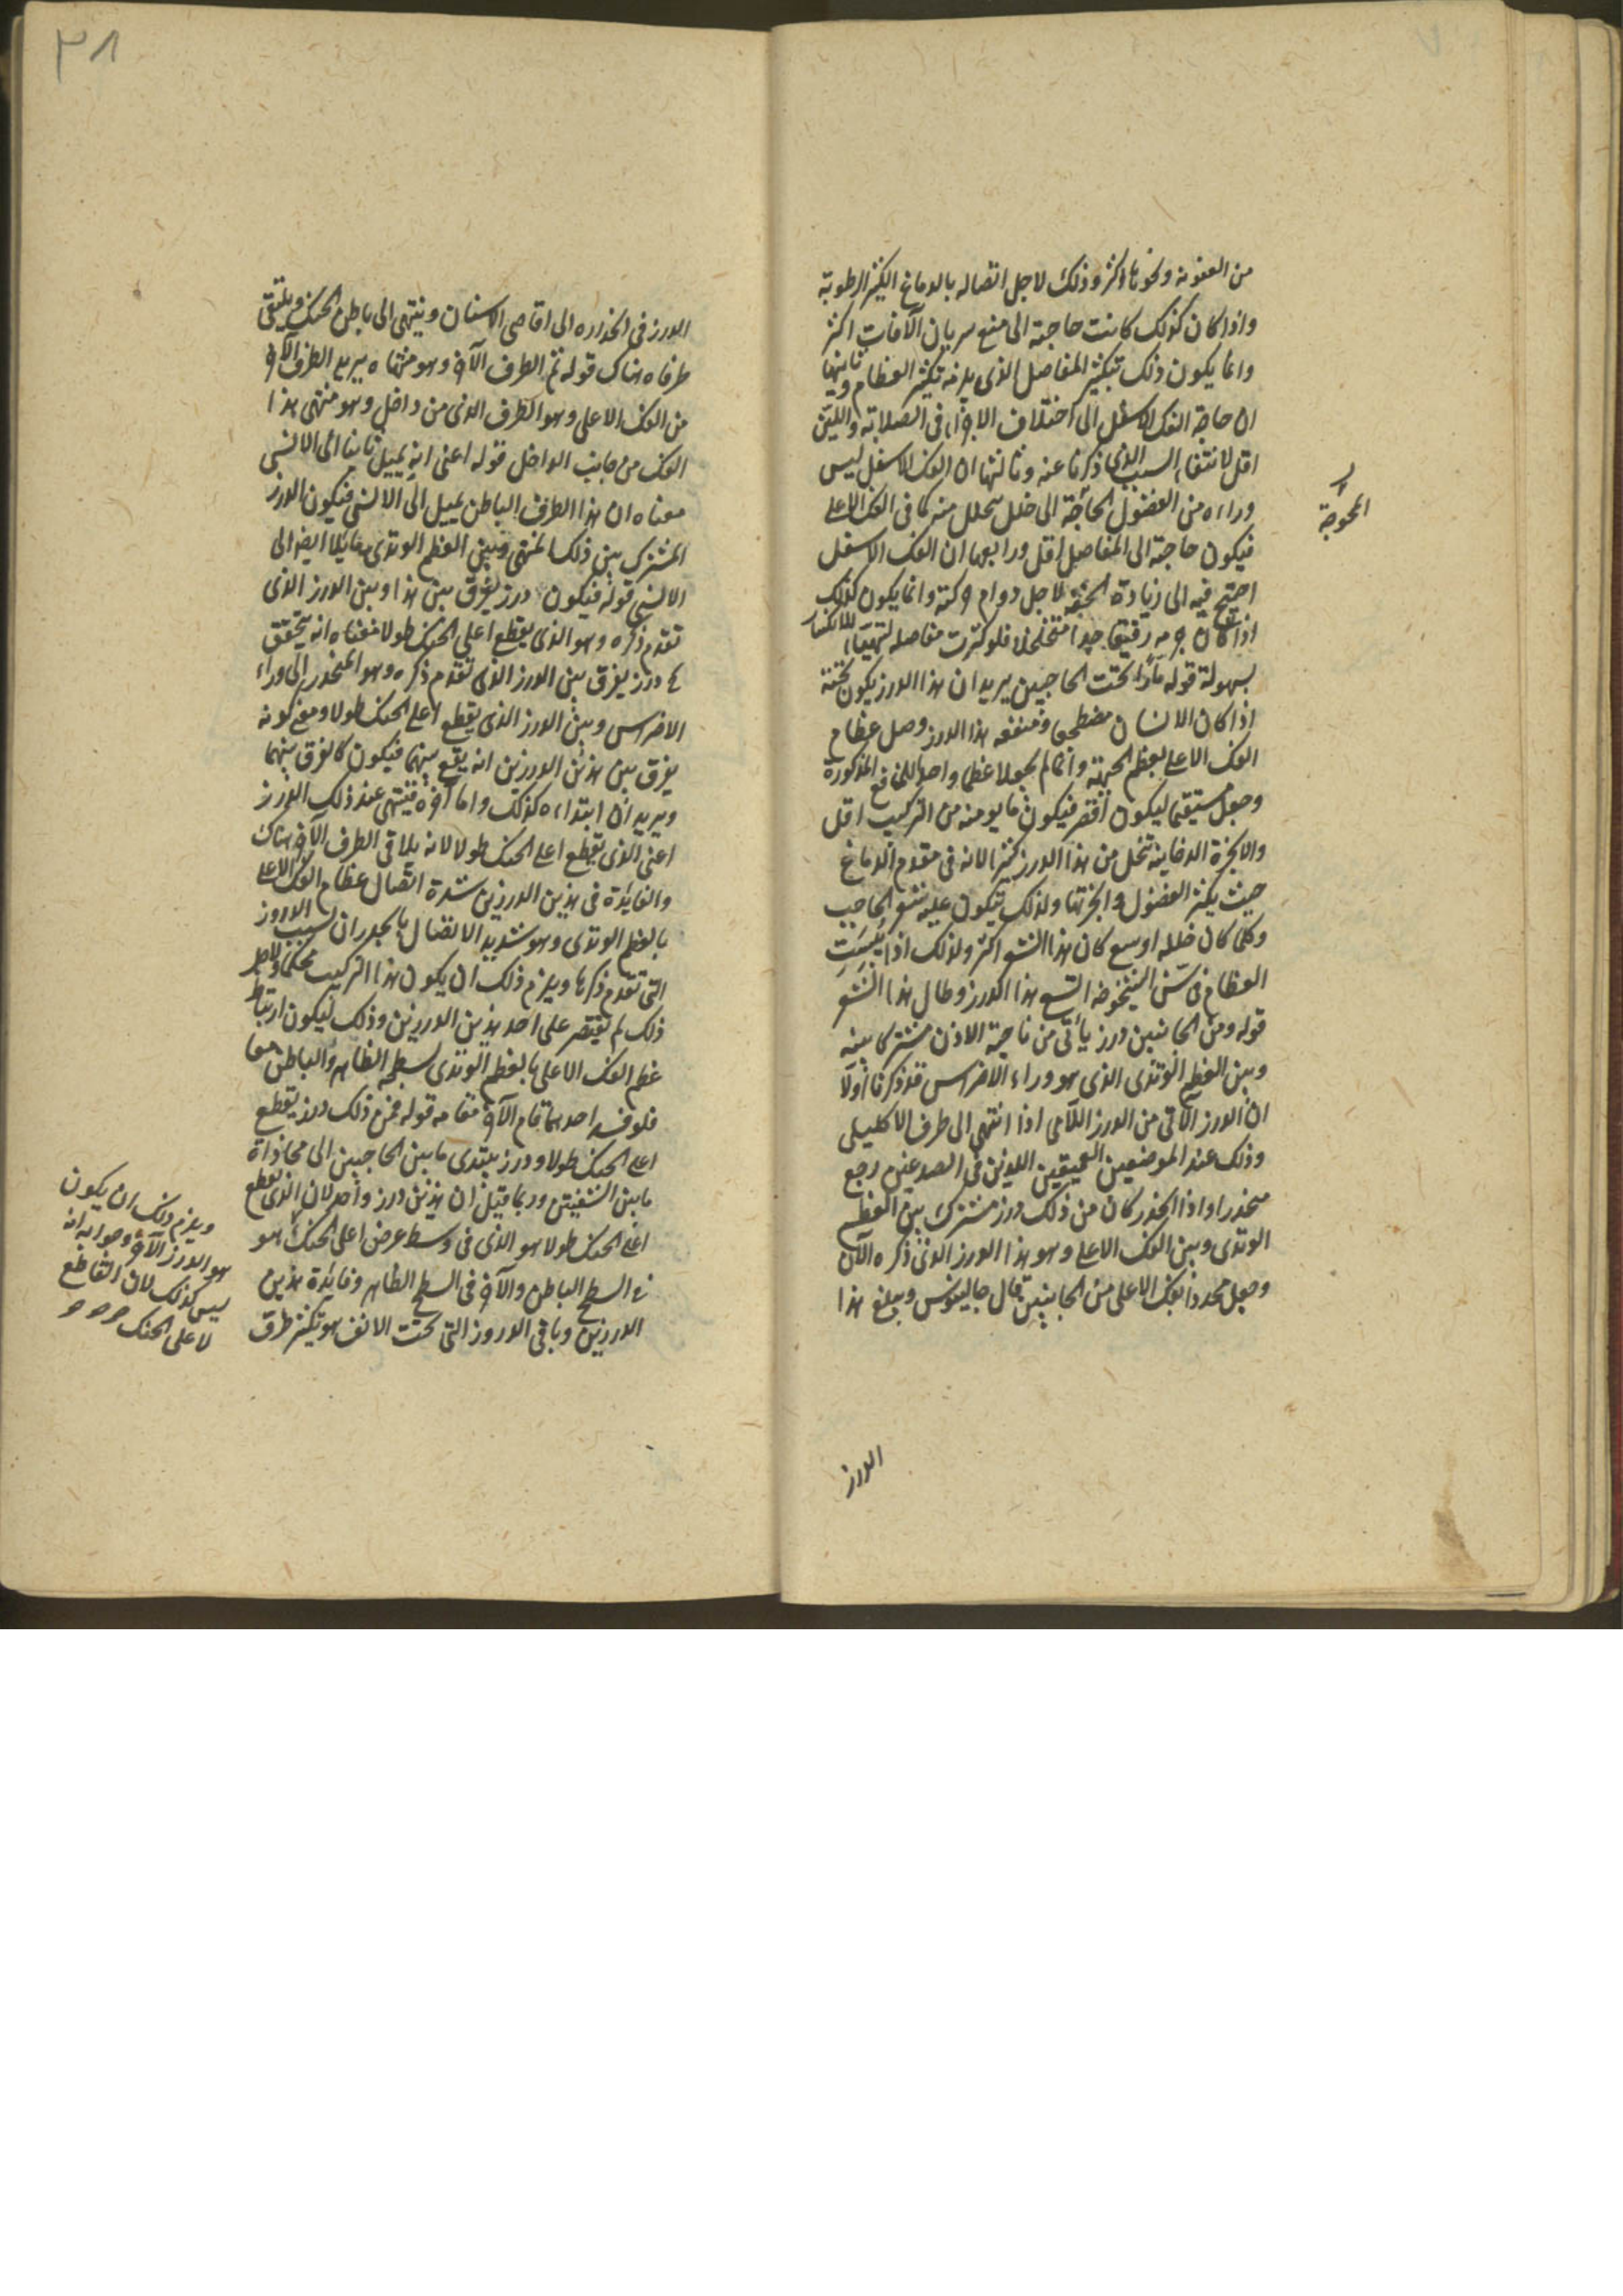 من العفونة ونحوها اكثر وذلك لاجل اتصاله بالدماغ الكثير الرطوبة
واذا كان كذلك كانت حاجته الى منع سريان الآفات اكثر
وانما يكون ذلك بتكثير المفاصل الذى يلزمه تكثير العظام وثانيها
ان حاجة الفك الاسفل الى اختلاف الاجزاء فى الصلابة واللين
اقل لانتفاء السبب الذى ذكرنا عنه وثالثها ان الفك الاسفل ليس
وراءه من الفضول المحوجة الى خلل يتحلل منه كما فى الفك الاعلى
فيكون حاجته الى المفاصل اقل ورابعها ان الفك الاسفل
احتيج فيه الى زيادة الخفة لاجل دوام حركته وانما يكون كذلك
اذا كان جرمه رقيقا جدا متخلخلا فلو كثرت مفاصله لتهيأ للانكسار
بسهولة قوله مارا تحت الحاجبين يريد ان هذا الدرز يكون تحته
اذا كان الانسان مضطجعا ومنفعه هذا الدرز وصل عظام
الفك الاعلى بعظم الجبهة وانما لم يجعلا عظما واحدا للمنافع المذكورة
وجعل مستقيما ليكون اقصر فيكون ما يوهنه من التركيب اقل
والابخرة الدخانية تتحلل من هذا الدرز كثيرا لانه فى مقدم الدماغ
حيث يكثر الفضول وابخرتها ولذلك يتكون عليه شعر الحاجب
وكلما كان خلله اوسع كان هذا الشعر اكثر ولذلك اذا يبست
العظام فى سن الشيخوخة اتسع هذا الدرز وطال هذا الشعر
قوله ومن الجانبين درز يأتى من ناحية الاذن مشتركا بينه
وبين العظم الوتدى الذى هو وراء الاضراس قد ذكرنا أولا
ان الدرز الآتى من الدرز اللامى اذا انتهى الى طرف الاكليلى
وذلك عند الموضعين العميقين اللذين فى الصدغين رجع
منحدرا واذا انحدر كان من ذلك درز مشترك بين العظم
الوتدى وبين الفك الاعلى وهو هذا الدرز الذى ذكره الآن
وجعل محددا للفك الاعلى من الجانبين قال جالينوس ويبلغ هذا
المحوجة
الدرز
٣١
الدرز فى انحداره الى اقاصى الاسنان وينتهى الى باطن الحنك ويلتقى
طرفاه هناك قوله ثم الطرف الآخر وهو منتهاه يريد الطرف الآخر
من الفك الاعلى وهو الطرف الذى من داخل وهو منتهى هذا
الفك من جانب الداخل قوله اعنى انه يميل ثانيا الى الانسى
معناه ان هذا الطرف الباطن يميل الى الانسى فيكون الدرز
المشترك بين ذلك المنتهى وبين العظم الوتدى مايلا ايضا الى
الانسى قوله فيكون درز يفرق بين هذا وبين الدرز الذى
تقدم ذكره وهو الذى يقطع اعلى الحنك طولا معناه انه يتحقق
ح درز يفرق بين الدرز الذى تقدم ذكره وهو المنحدر الى وراء
الاضراس وبين الدرز الذى يقطع اعلى الحنك طولا ومعنى كونه
يفرق بين هذين الدرزين انه يقع بينهما فيكون كالفرق بينهما
ويريد ان ابتداءه كذلك واما آخره فينتهى عند ذلك الدرز
اعنى الذى يقطع اعلى الحنك طولا لانه يلاقى الطرف الآخر هناك
والفايدة فى هذين الدرزين شدة اتصال عظام الفك الاعلى
بالعظم الوتدى وهو شديد الاتصال بالجدران بسبب الدروز
التى تقدم ذكرها ويلزم ذلك ان يكون هذا التركيب محكما ولاجل
ذلك لم يقتصر على احد هذين الدرزين وذلك ليكون ارتباط
عظم الفك الاعلى بالعظم الوتدى بسطحه الظاهر والباطن معا
فلو فسد احدهما قام الآخر مقامه قوله فمن ذلك درز يقطع
اعلى الحنك طولا ودرز يبتدى ما بين الحاجبين الى محاذاة
ما بين الثنيتين وربما قيل ان هذين درز واحد لان الذى يقطع
اعلى الحنك طولا هو الذى فى وسط عرض اعلى الحنك هو
فى السطح الباطن والآخر فى السطح الظاهر وفايدة هذين
الدرزين وباقى الدروز التى تحت الانف هو تكثير طرق
ويلزم ذلك ان يكون
هو الدرز الآخر وجوابه انه
ليس كذلك لان القاطع
لاعلى الحنك